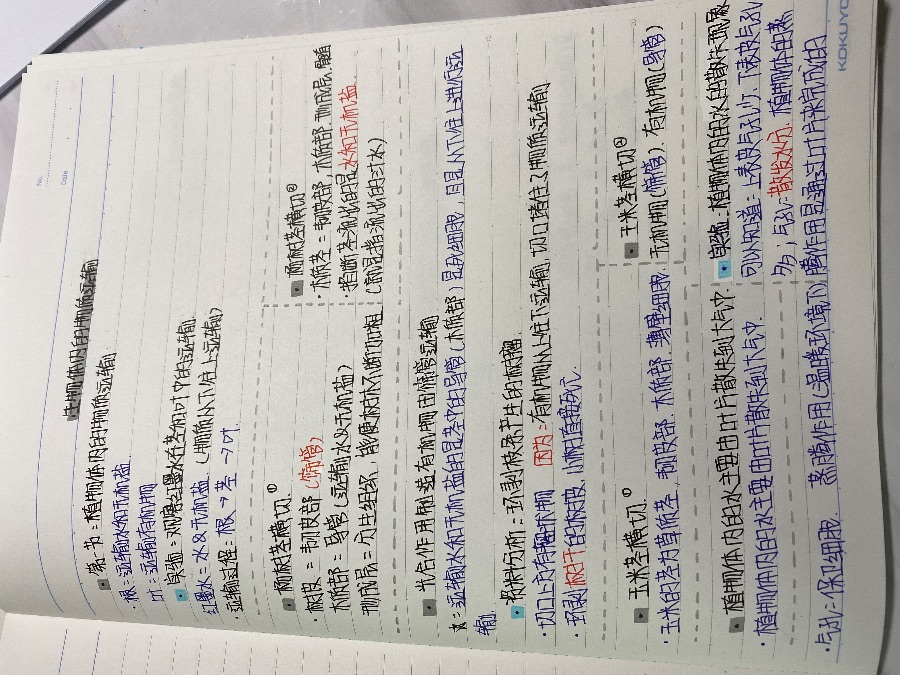 No.
Date
植物体内的物质运输
条 书：植物体内的物质运输.
·根：运输水和无机盐.
叶：运输有机物
实验：观察红墨水在茎和叶中的运输
红墨水 = 水 & 无机盐 (物质从下往上运输)
·运输过程：根 → 茎 → 叶
杨树茎横切①
树皮：韧皮部 (筛管)
木质部 = 导管 (运输水 & 无机盐)
形成层 = 分生组织, 能使树木不断加粗
杨树茎横切②
·木质茎 = 韧皮部, 木质部, 形成层, 髓
·指断茎流出的是水和无机盐
(都是指流出的汁水)
光合作用制造有机物由筛管运输
运输水和无机盐的是茎中的导管 (木质部) 是死细胞, 且是从下往上进行运
输.
资料分析：环剥树皮产生的树瘤
·切口上方有瘤状物 因为 = 有机物从上往下运输, 切口堵住了物质运输
·环剥树干的树皮, 小树直接死亡
玉米茎横切①
·玉米的茎为草质茎, 韧皮部. 木质部. 薄壁细胞.
玉米茎横切②
无机物 (筛管). 有机物 (导管)
植物体内的水主要由叶片散失到大气中.
植物体内的水主要由叶片散失到大气中.
·气孔 = 保卫细胞.
实验：植物体内的水的散失现象
可以知道：上表皮气孔少, 下表皮气孔
多；气孔：散发水分. 植物体的蒸
腾作用是通过叶片来完成的
蒸腾作用 (温暖环境下)
KOKUYO